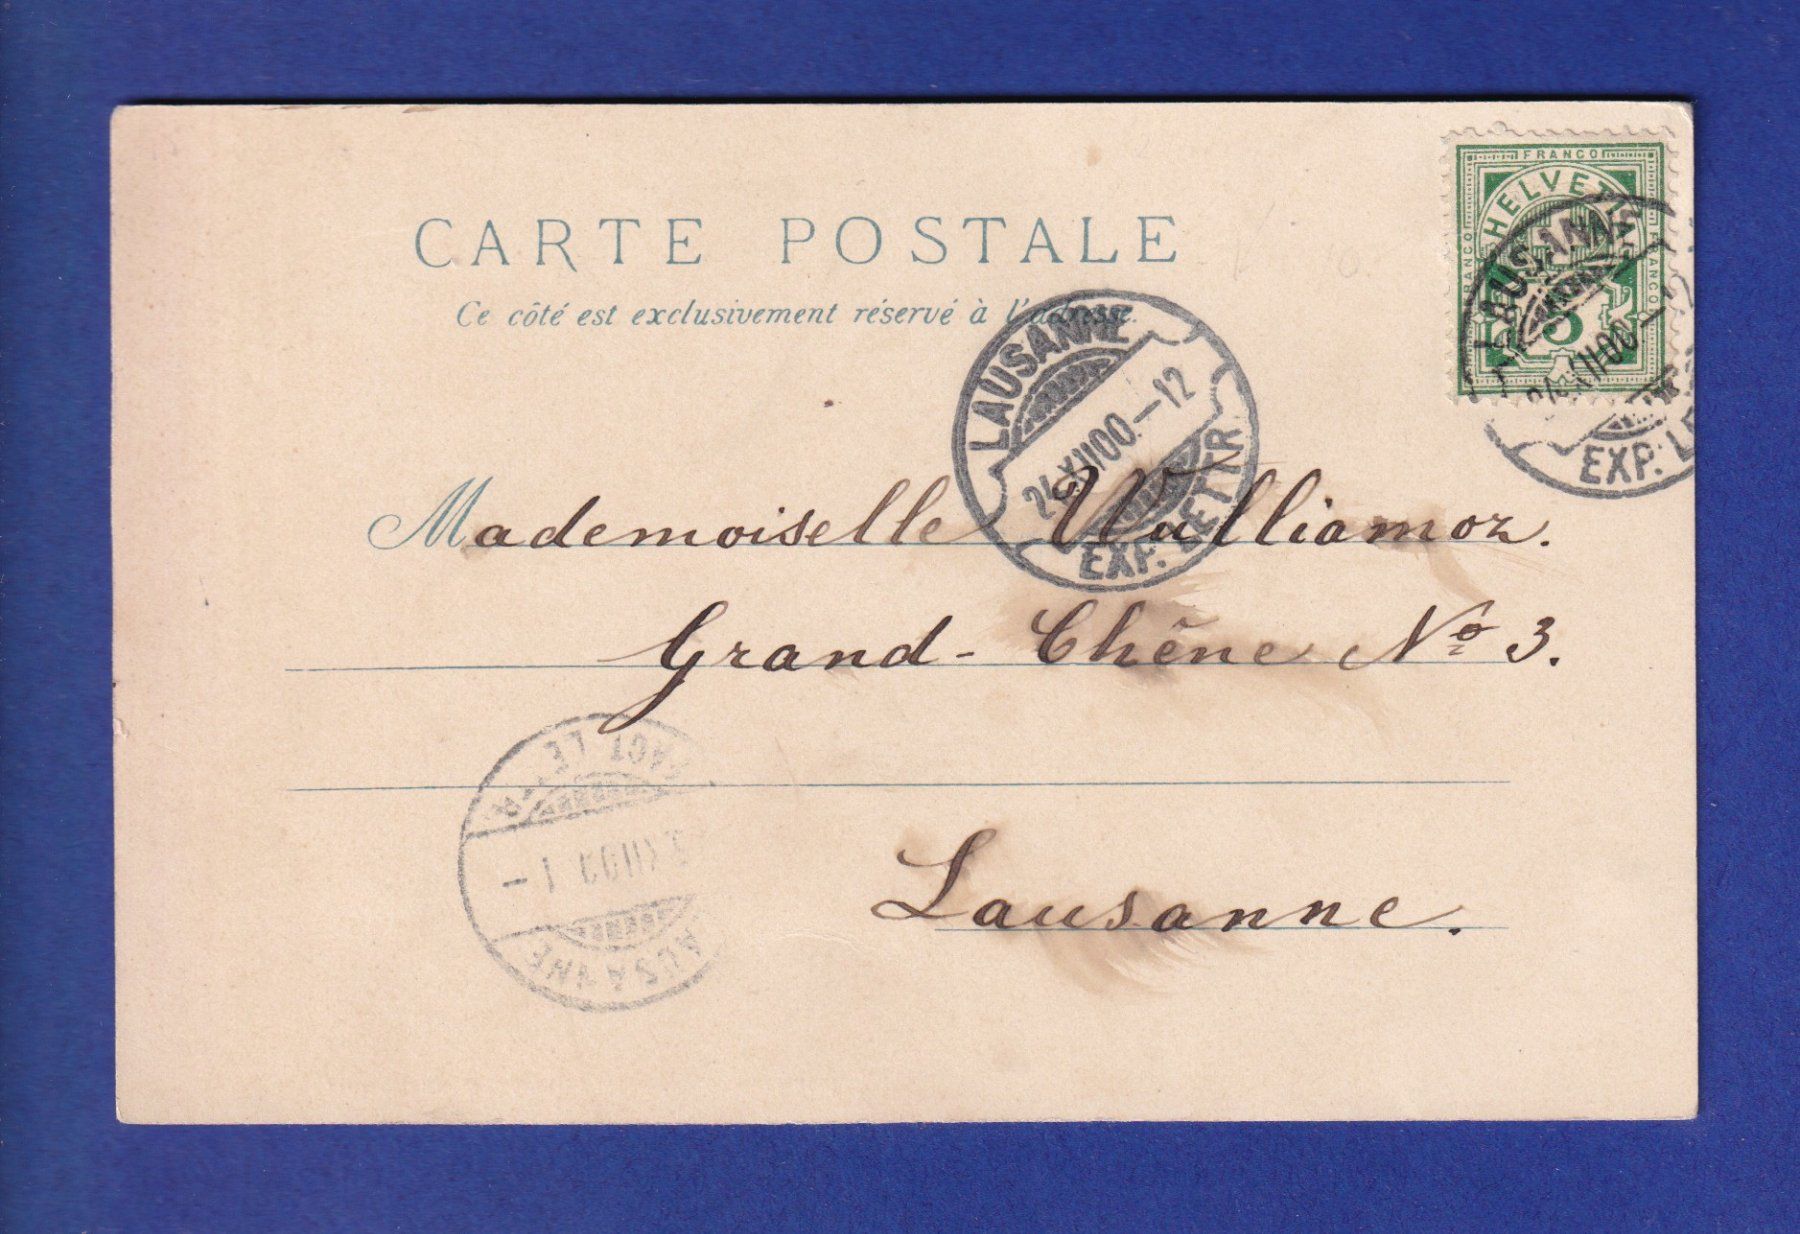 CARTE POSTALE
Ce côté est exclusivement réservé à l'adresse.
FRANCO
HELVETIA
FRANCO
FRANCO
5
LAUSANNE
24.XII00.—
EXP. LE
LAUSANNE
24.XII00.—12
EXP. LETTR
Mademoiselle Wulliamoz.
Grand-Chêne Nº 3.
Lausanne.
LAUSANNE
XII00 1 –
FACT LETTR